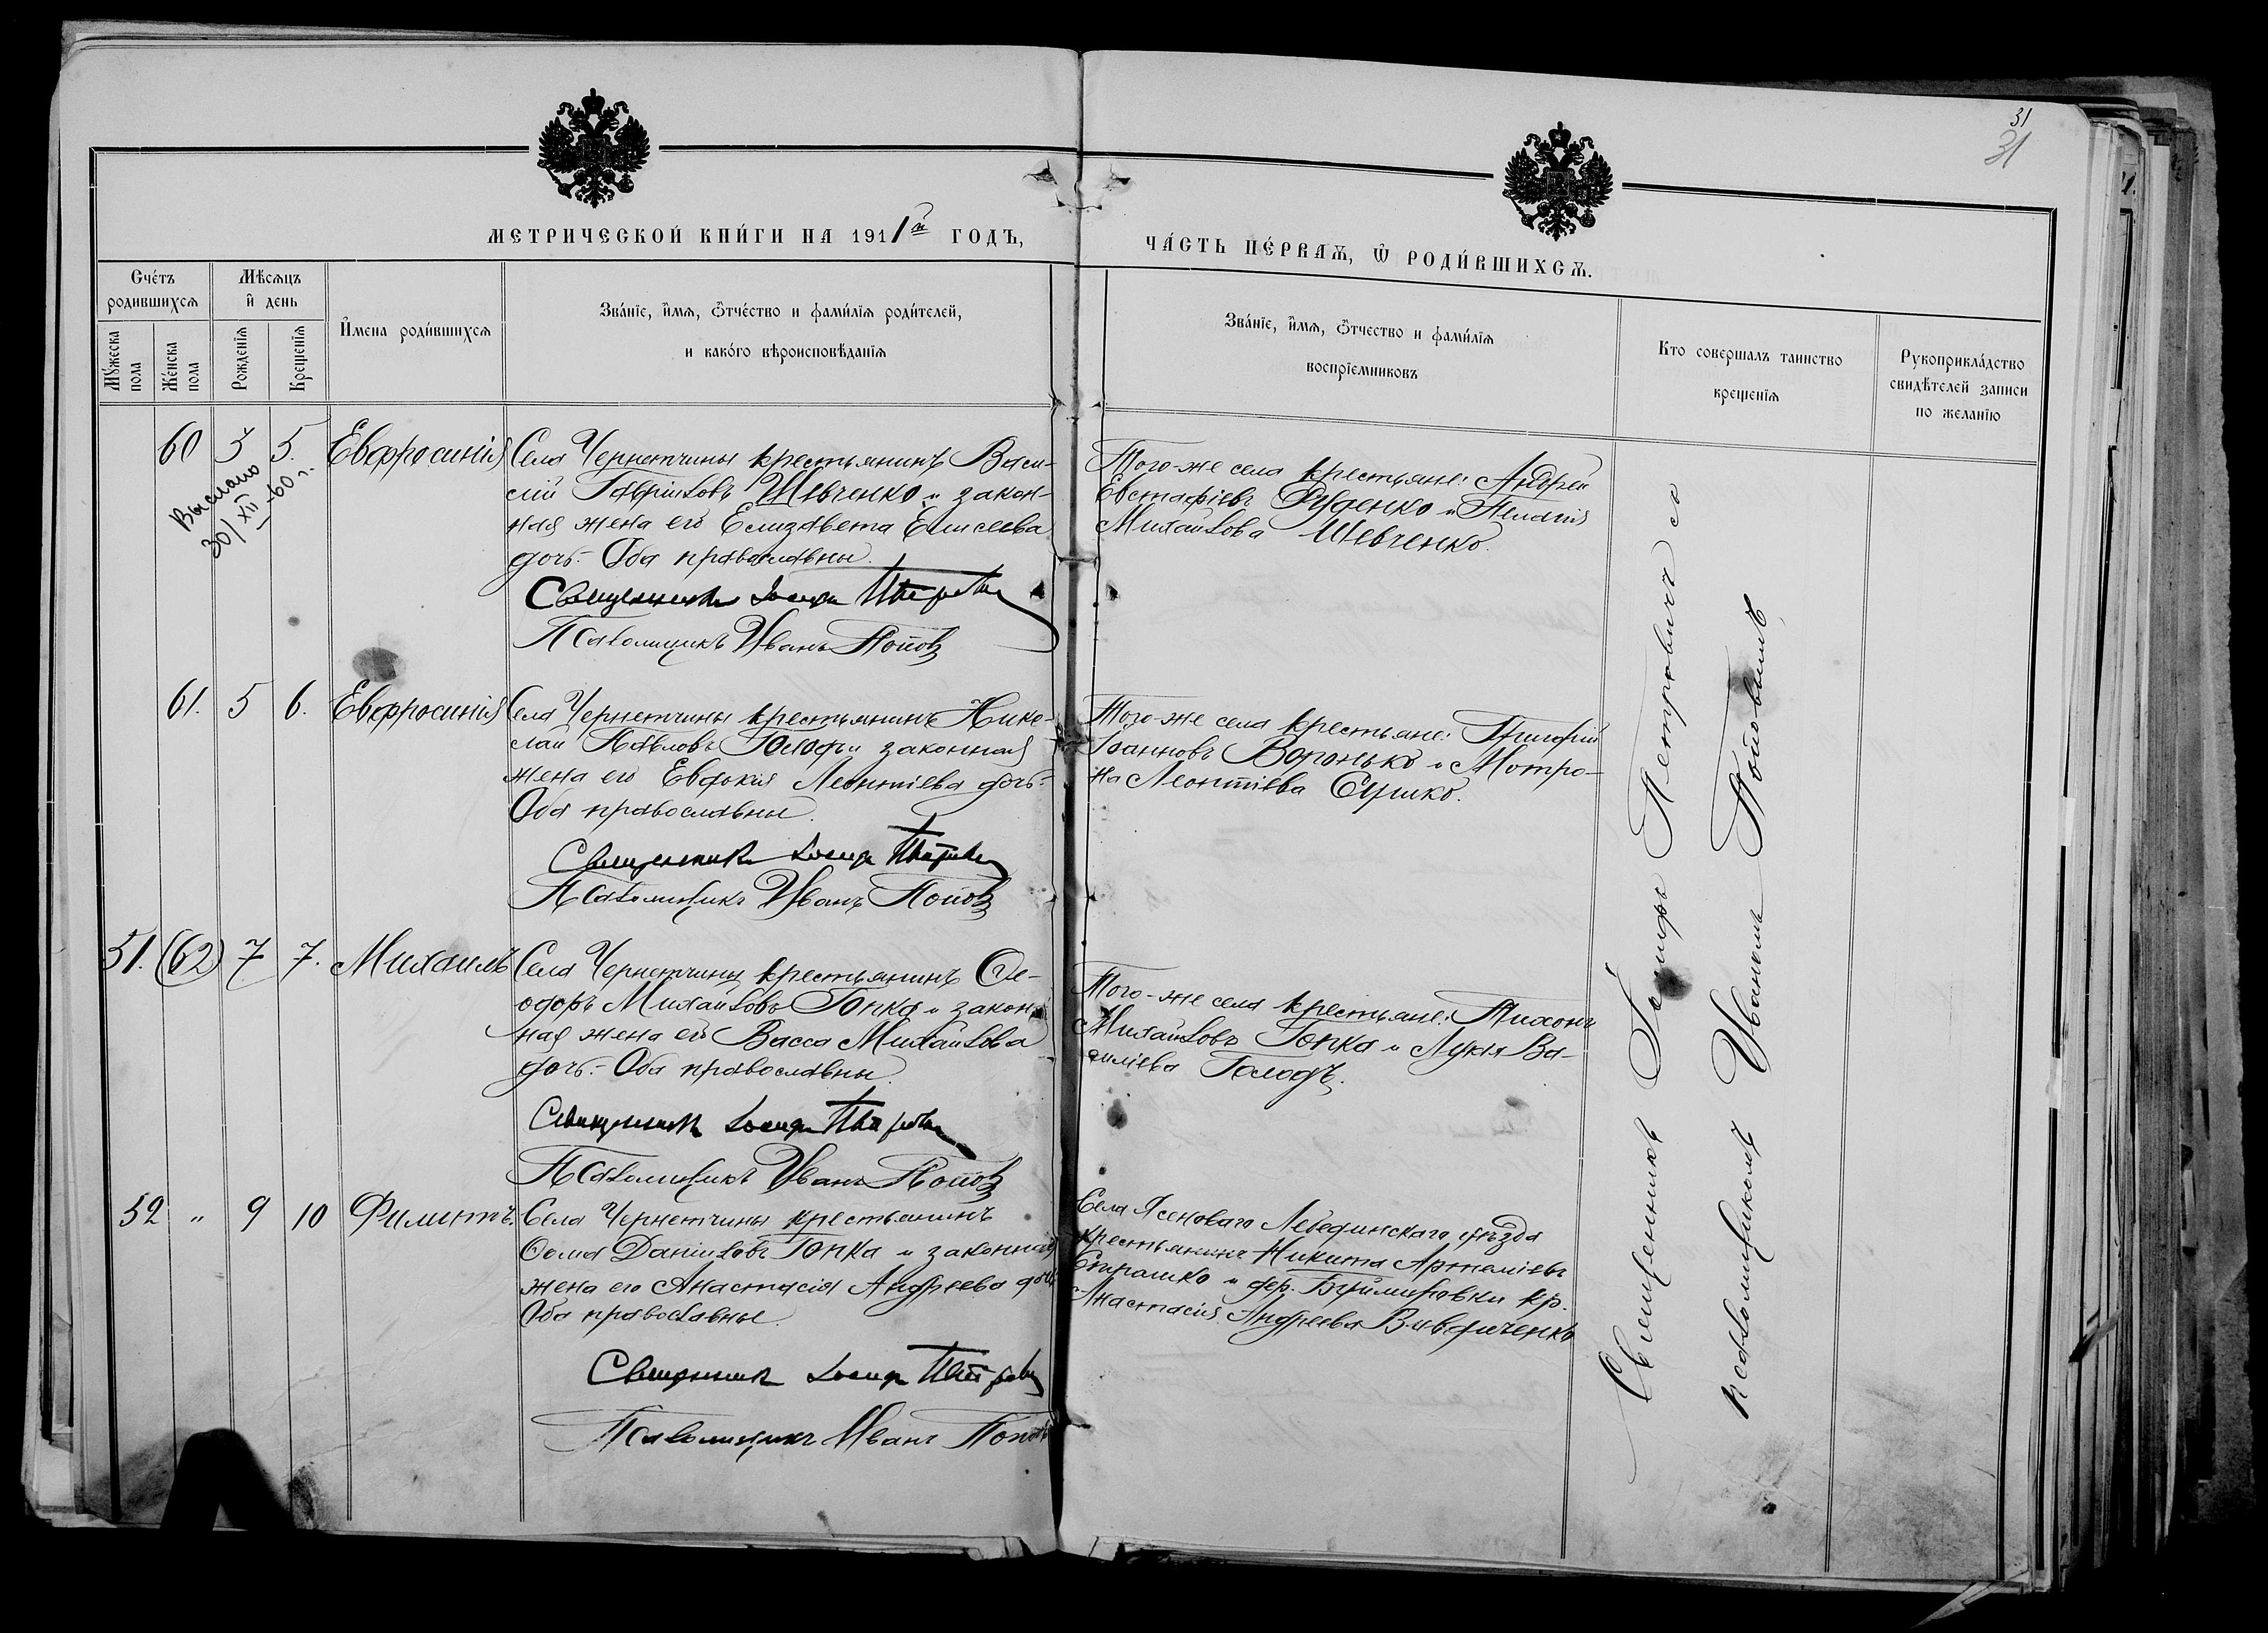 31
31
МЕТРИЧЕСКОЙ КНИ́ГИ НА 1911й ГОДЪ,
ЧА́СТЬ ПЕ́РВАѦ, Ѿ РОДИ́ВШИХСѦ.
Счéтъ родившихсѧ
Мꙋ́жеска пола
Жéнска пола
Мѣсѧцъ и҆ день
Рожденїѧ
Крещенїѧ
И҆́мена роди́вшихсѧ
Зва́нїе, и҆́мѧ, ѻ҆тчество и фами́лїѧ роди́телей,
и како́го вѣроисповѣданїѧ
Зва́нїе, и҆́мѧ, ѻ҆тчество и фами́лїѧ
воспрїемниковъ
Кто совершалъ таинство
крещенїѧ
Рукоприкла́дство
свидѣтелей записи
по желанїю
60 3 5. Евфросинія
Выслано
30/XII-60 г.
Села Чернетчины крестьянинъ Васи-
лій Гавріиловъ Шевченко и закон-
ная жена его Елизавета Елисеева
дочь. Оба православны.
Священникъ Іосифъ Петровичъ
Псаломщикъ Иванъ Попов
Того-же села крестьяне: Андрей
Евстафіевъ Руденко и Пелагія
Михайлова Шевченко.
61. 5 6. Евфросинія
Села Чернетчины крестьянинъ Нико-
лай Павловъ Голодъ и законная
жена его Евдокія Леонтіева дочь.
Оба православны.
Священникъ Іосифъ Петровичъ
Псаломщикъ Иванъ Попов
Того-же села крестьяне: Григорій
Іоанновъ Воронько и Мотро-
на Леонтіева Сушко.
51. (62) 7 7. Михаилъ
Села Чернетчины крестьянинъ Ѳе-
одоръ Михайловъ Гопка и закон-
ная жена его Васса Михайлова
дочь. Оба православны.
Священникъ Іосифъ Петровичъ
Псаломщикъ Иванъ Попов
Того-же села крестьяне: Тихонъ
Михайловъ Гопка и Лукія Ва-
силіева Голодъ.
52 " 9 10 Филиппъ.
Села Чернетчины крестьянинъ
Ѳома Даніиловъ Гопка и законная
жена его Анастасія Андреева дочь
Оба православные.
Священникъ Іосифъ Петровичъ
Псаломщикъ Иванъ Попов
Села Ясеноваго Лебединскаго уѣзда
крестьянинъ Никита Артеміевъ
Страшко и дер. кр.
Анастасія Андреева Вивдиченко
Священникъ Іосифъ Петровичъ со
псаломщикомъ Иваномъ Поповымъ